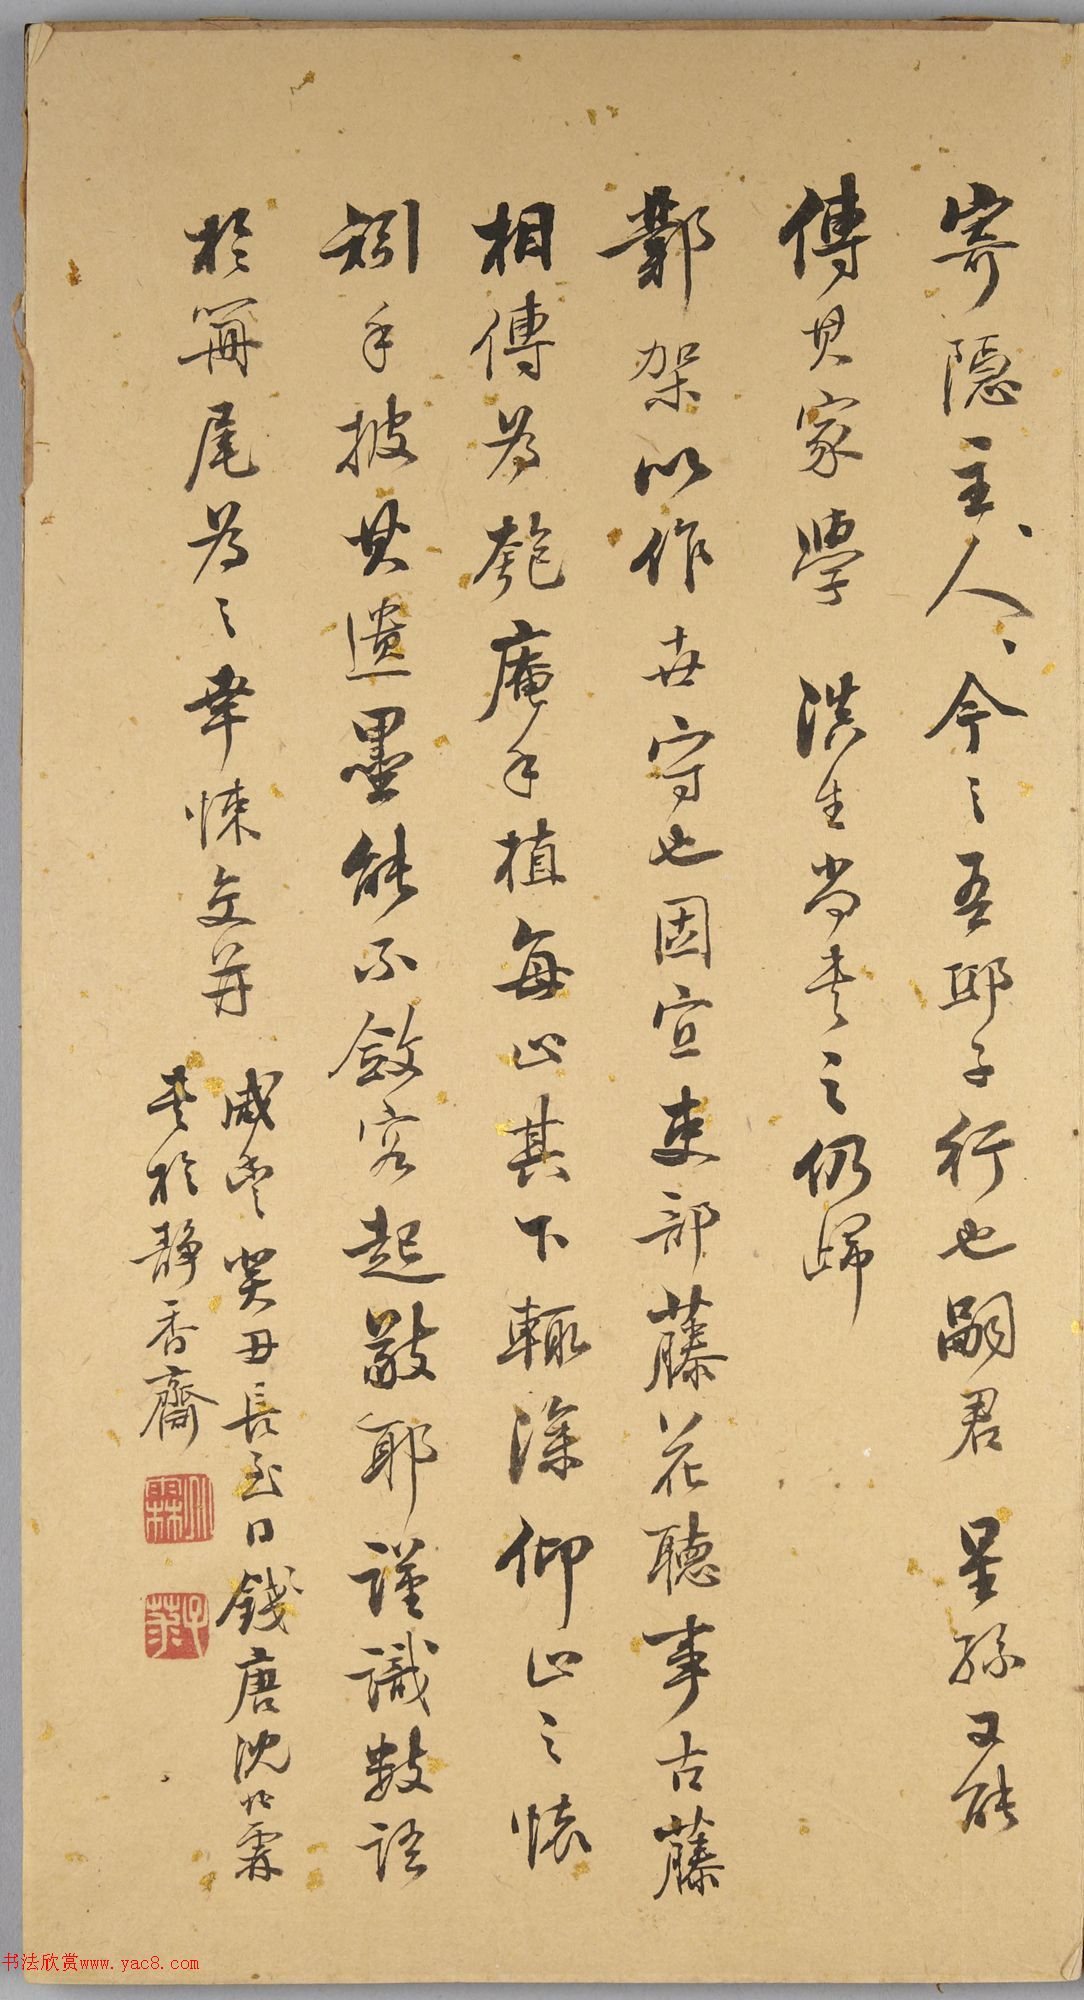 寄隱主人今之吾邱子行也嗣君 星孫又能
傳其家學 洪生尚書之仍歸
鄴架以作世守也因宣吏部藤花聽事古藤
相傳為匏庵手植每止其下輒深仰止之懷
矧手披其遺墨能不斂容起敬耶謹識數語
於冊尾為之幸悚交并
咸豐癸丑長至日錢唐沈兆霖
書於靜香齋
书法欣赏www.yac8.com